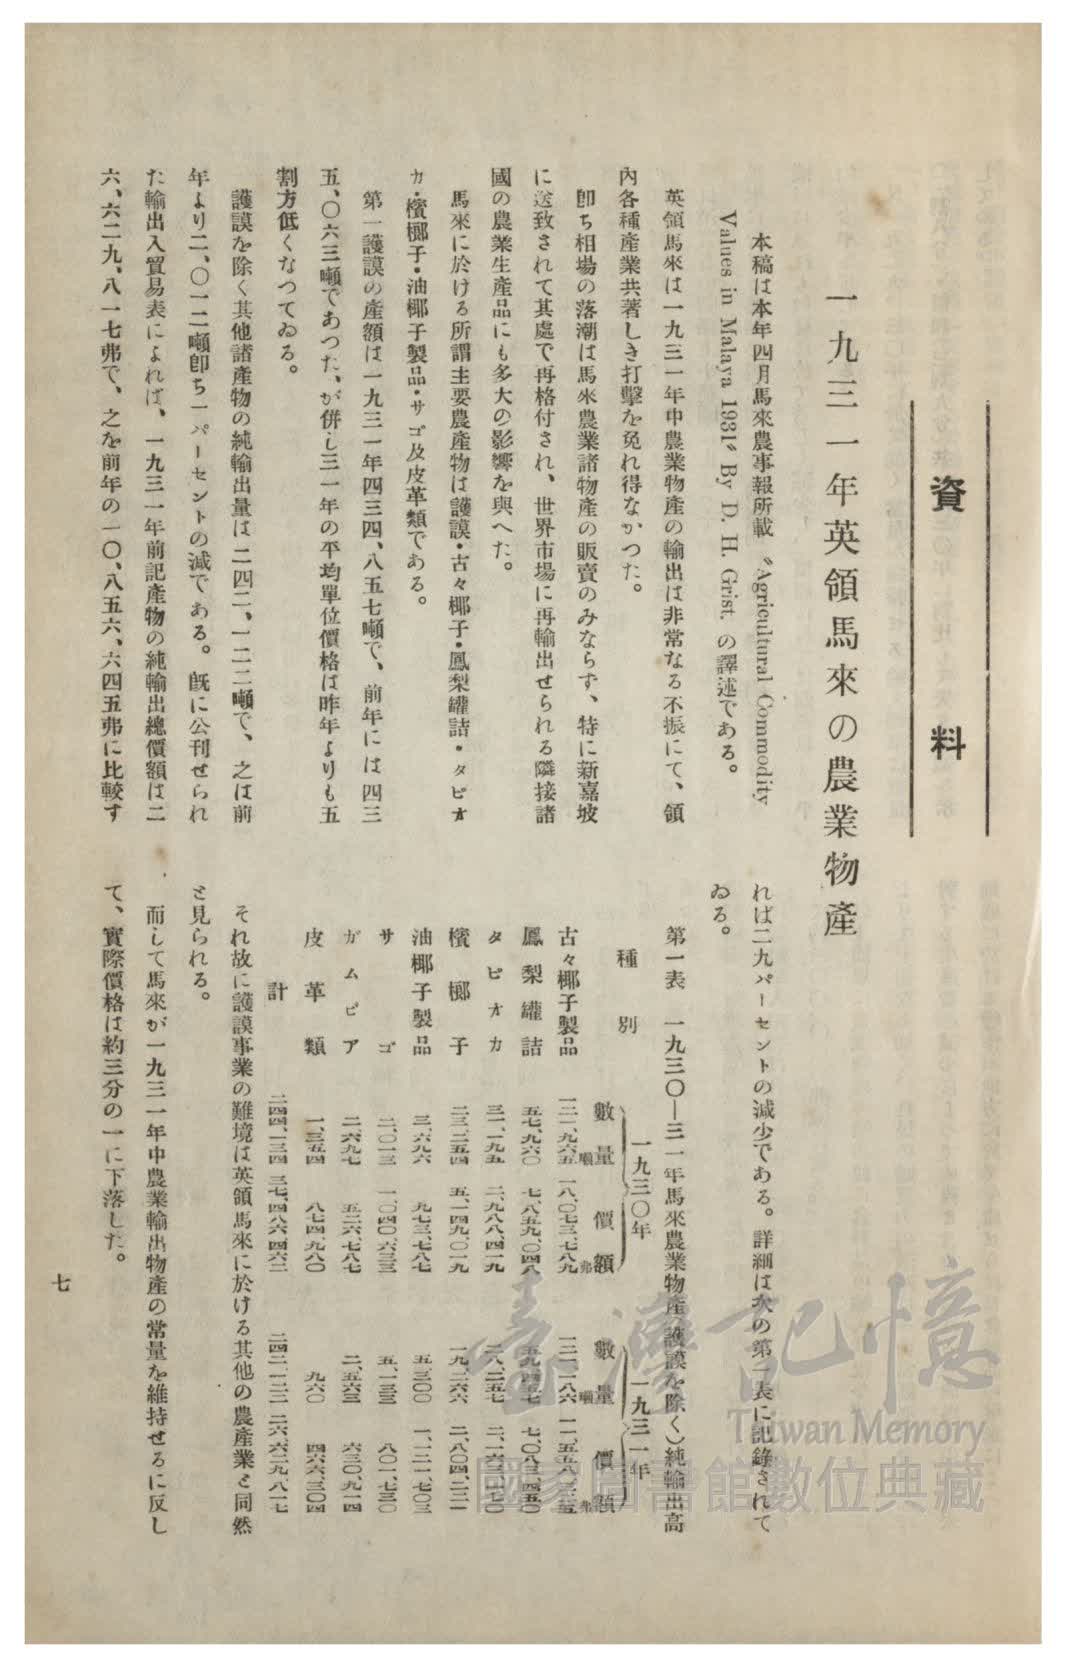 資料
一九三一年英領馬來の農業物產
本稿は本年四月馬來農事報所載 〝Agricultural Commodity
Values in Malaya 1931〞 By D. H. Grist. の譯述である。
英領馬來は一九三一年中農業物產の輸出は非常なる不振にて、領
內各種產業共著しき打擊を免れ得なかつた。
卽ち相場の落潮は馬來農業諸物產の販賣のみならず、特に新嘉坡
に送致されて其處で再格付され、世界市場に再輸出せられる隣接諸
國の農業生產品にも多大の影響を與へた。
馬來に於ける所謂主要農產物は護謨・古々椰子・鳳梨罐詰・タピオ
カ・檳榔子・油椰子製品・サゴ及皮革類である。
第一護謨の產額は一九三一年四三四、八五七噸で、前年には四三
五、〇六三噸であつた、が併し三一年の平均單位價格は昨年よりも五
割方低くなつてゐる。
護謨を除く其他諸產物の純輸出量は二四二、一二二噸で、之は前
年より二、〇一二噸卽ち一パーセントの減である。旣に公刊せられ
た輸出入貿易表によれば、一九三一年前記產物の純輸出總價額は二
六、六二九、八一七弗で、之を前年の一〇、八五六、六四五弗に比較す
れば二九パーセントの減少である。詳細は次の第一表に記錄されて
ゐる。
第一表 一九三〇—三一年馬來農業物產(護謨を除く)純輸出高
種別 一九三〇年 數量 價額 一九三一年 數量 價額
古々椰子製品 一二一、九六五噸 一八、〇七三、七八九弗 一二一、一八六噸 一一、五五八、三
鳳梨罐詰 五七、九六〇 七、八五九、〇四八 五九、四五七 七、〇八三、四五〇
タピオカ 三一、一九五 二、九八八、四一九 二八、二五七 二、一六三
檳榔子 二三、二五四 五、一四九、〇一九 一九、二六六 二、八〇四、二三一
油椰子製品 三、六九六 九七三、七八七 五、三〇〇 一、一二一、七〇三
サゴ 二、〇一三 一、〇四〇、六三三 五、一三三 八〇一、七三〇
ガムビア 二、六九七 五二六、七八七 二、五六三 六三〇、九一四
皮革類 一、三五四 八七四、九八〇 九六〇 四六六、三〇四
計 二四四、一三四 三七、四八六、四六二 二四二、一二二 二六、六二九、八一七
それ故に護謨事業の難境は英領馬來に於ける其他の農產業と同然
と見られる。
而して馬來が一九三一年中農業輸出物產の常量を維持せるに反し
て、實際價格は約三分の一に下落した。
七
臺灣記憶
Taiwan Memory
國家圖書館數位典藏